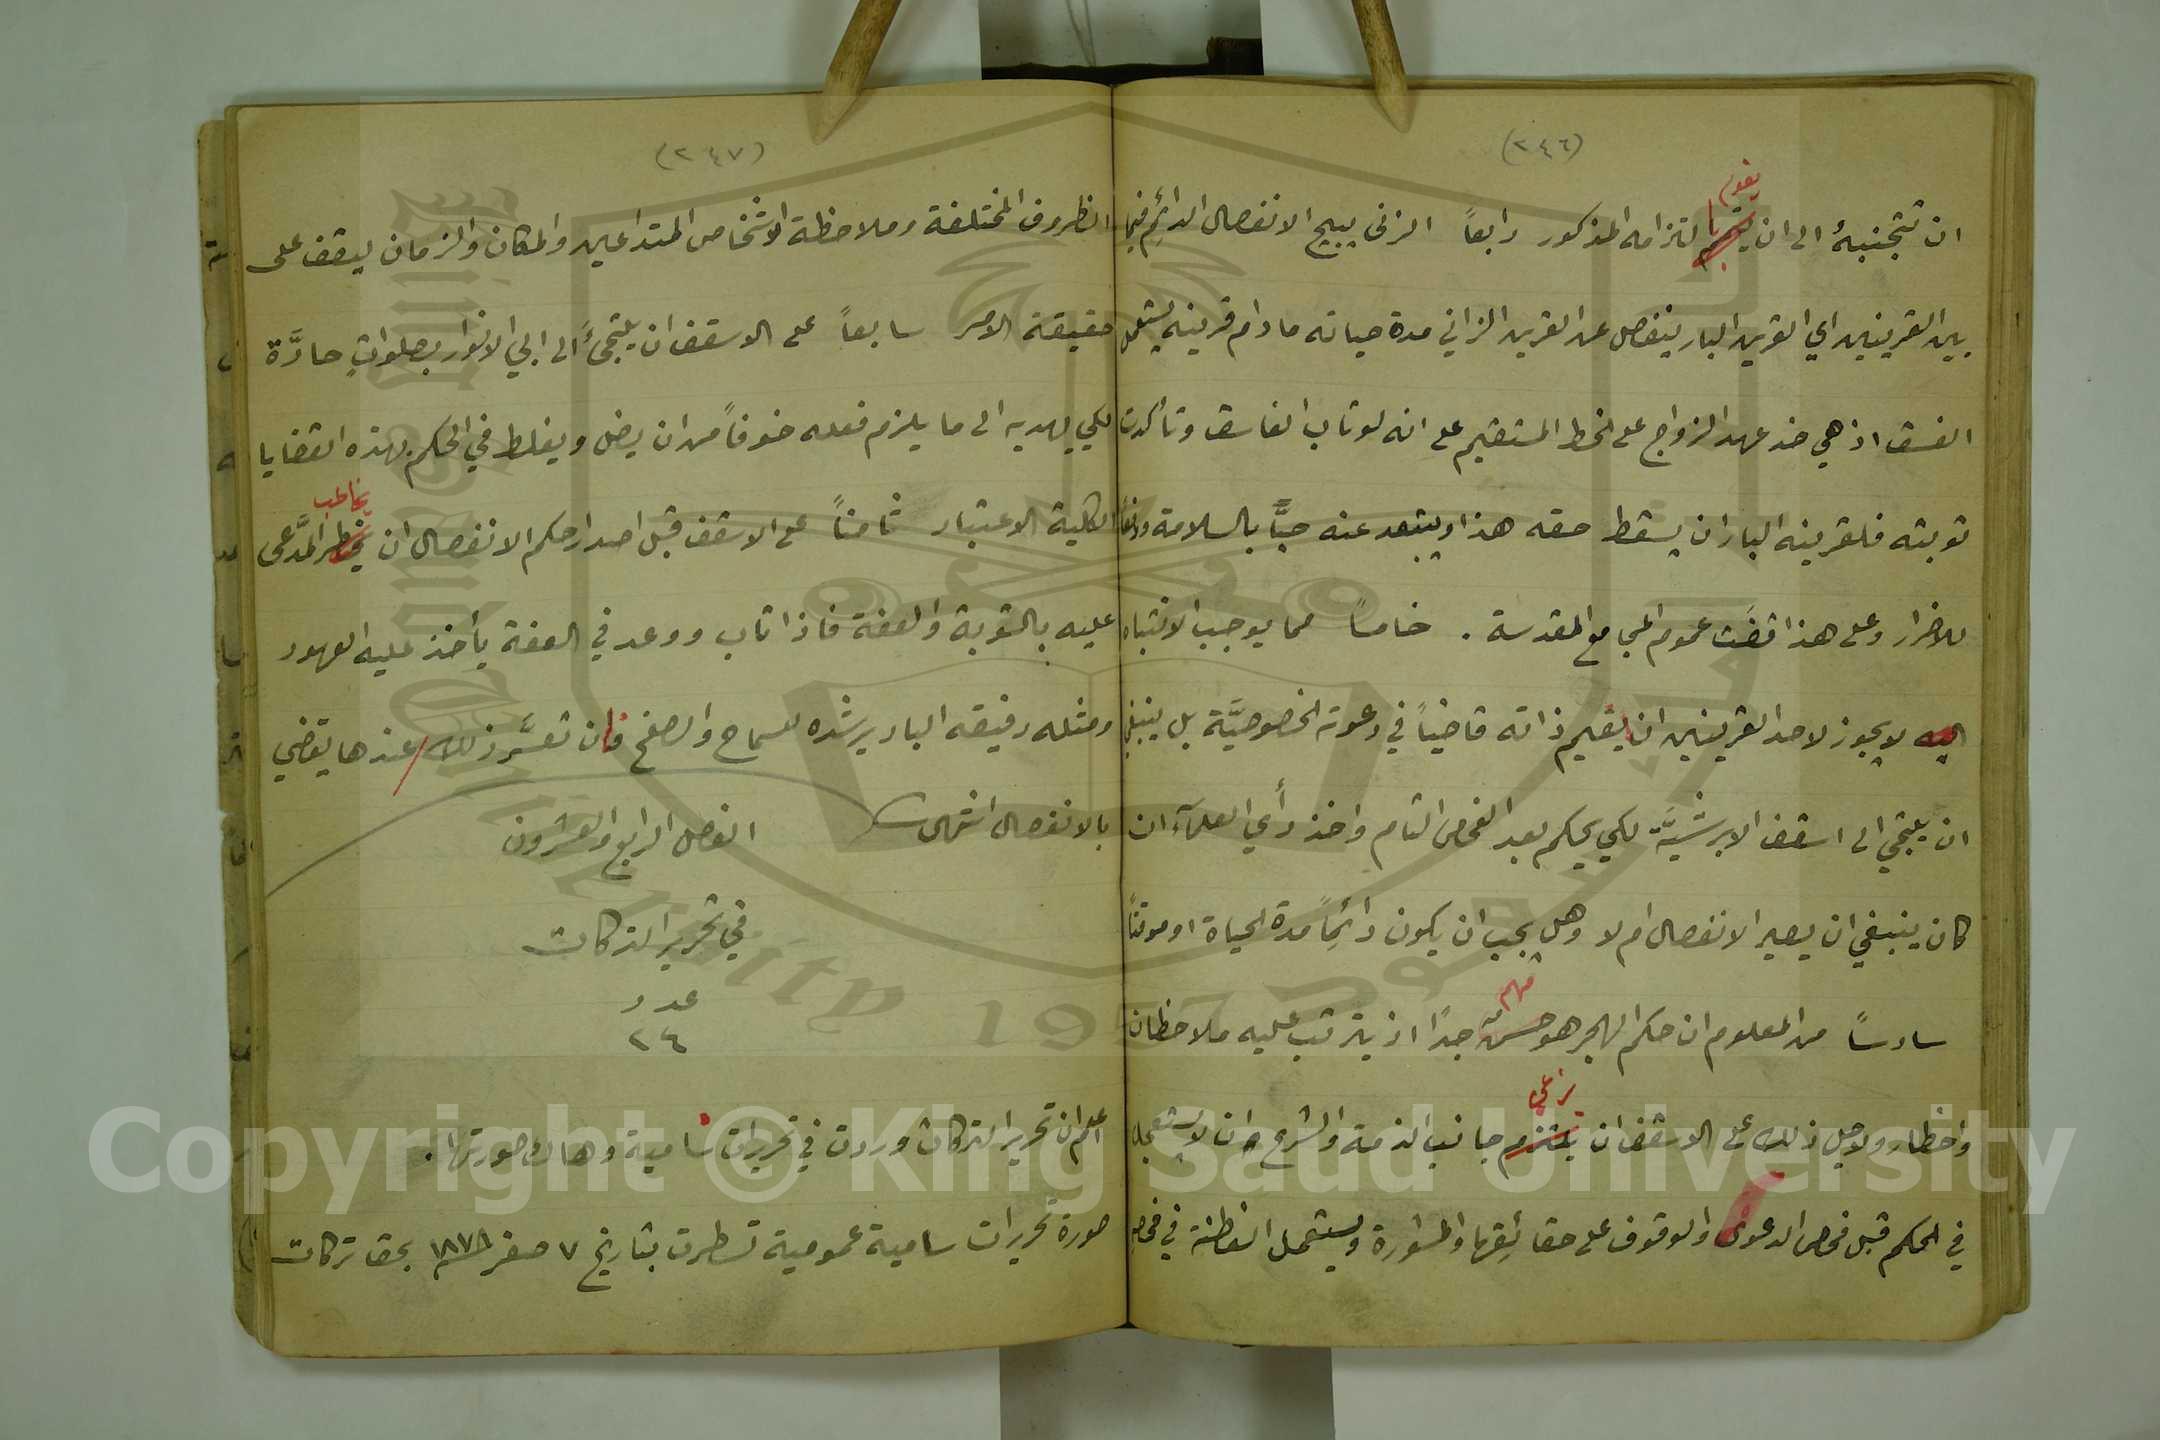 (٢٤٦)
ان تتجنبهُ الى ان يقوم بالتزامه المذكور رابعاً الزنى يبيح الانفصال الدائم فيما
بين القرينين اي القرين البار ينفصل عن القرين الزاني مدة حياته مادام قرينه يستعمل
الفسق اذ هي ضد عهد الزواج على الخط المستقيم على انه لو تاب الفاسق وتأكدت
توبته فلقرينه البار ان يسقط حقه هذا ويبتعد عنه حبًّا بالسلامة ودفعاً
للاضرار وعلى هذا قضَت عموم المجامع المقدسة . خامساً مما يوجب الانتباه
اليه لا يجوز لاحد القرينين ان يقيم ذاته قاضياً في دعوته الخصوصيَّة بل ينبغي
ان يلتجي الى اسقف الابرشيَّة لكي يحكم بعد الفحص التام واخذ رأي العلمآء ان
كان ينبغي ان يصير الانفصال ام لا وهل يجب ان يكون دائماً مدة الحياة او موقتاً
سادساً من المعلوم ان حكم الهجر هو مهم جدًا اذ يترتب عليه ملاحظات
واخطار ولاجل ذلك على الاسقف ان يراعي جانب الذمة والشرع وان لا يستعجل
في الحكم قبل فحص الدعوى والوقوف على حقائقها والمشورة ويستعمل الفطنة في فحص
(٢٤٧)
الظروف المختلفة وملاحظة الاشخاص المتداعين والمكان والزمان ليقف على
حقيقة الامر سابعاً على الاسقف ان يلتجئَ الى ابي الانوار بصلواتٍ حارَّة
لكي يهديه الى ما يلزم فعله خوفاً من ان يضل ويغلط في الحكم بهذه القضايا
الكلية الاعتبار ثامناً على الاسقف قبل اصدار حكم الانفصال ان يخاطب المدَّعى
عليه بالتوبة والعفة فاذا تاب ووعد في العفة يأخذ عليه العهود
ومثله رفيقه البار يرشده للسماح والصفح فان تعسَّر ذلك عندها يقضي
بالانفصال انتهى
الفصل الرابع والعشرون
في تحرير التركات
عدد
٢٤
اعلم ان تحرير التركات وردت في تحريرات سامية وهاك صورتها .
صورة تحريرات سامية عمومية تسطرت بتاريخ ٧ صفر ١٨٧٨ بحق تركات